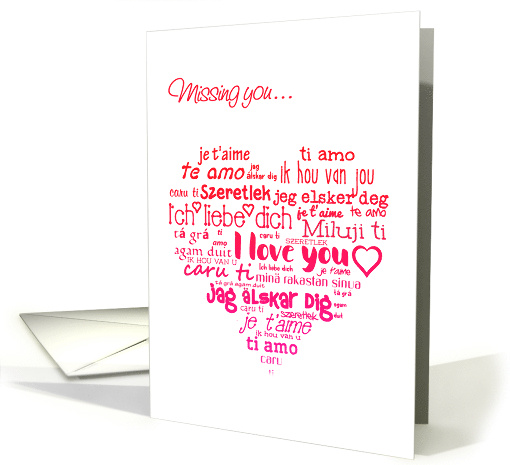 Missing you...
je t'aime ti amo
te amo jag älskar dig Ik hou van jou
caru ti Szeretlek jeg elsker deg
Ich liebe dich je t'aime te amo
Miluji ti
tá grá amo caru ti SZERETLEK
agam duit I love you
IK HOU VAN U
caru ti Ich liebe dich je t'aime
minä rakastan sinua
tá grá agam duit tá grá
jag älskar Dig agam duit
caru ti szeretlek
je t'aime
ik hou van u
ti amo
caru
ti